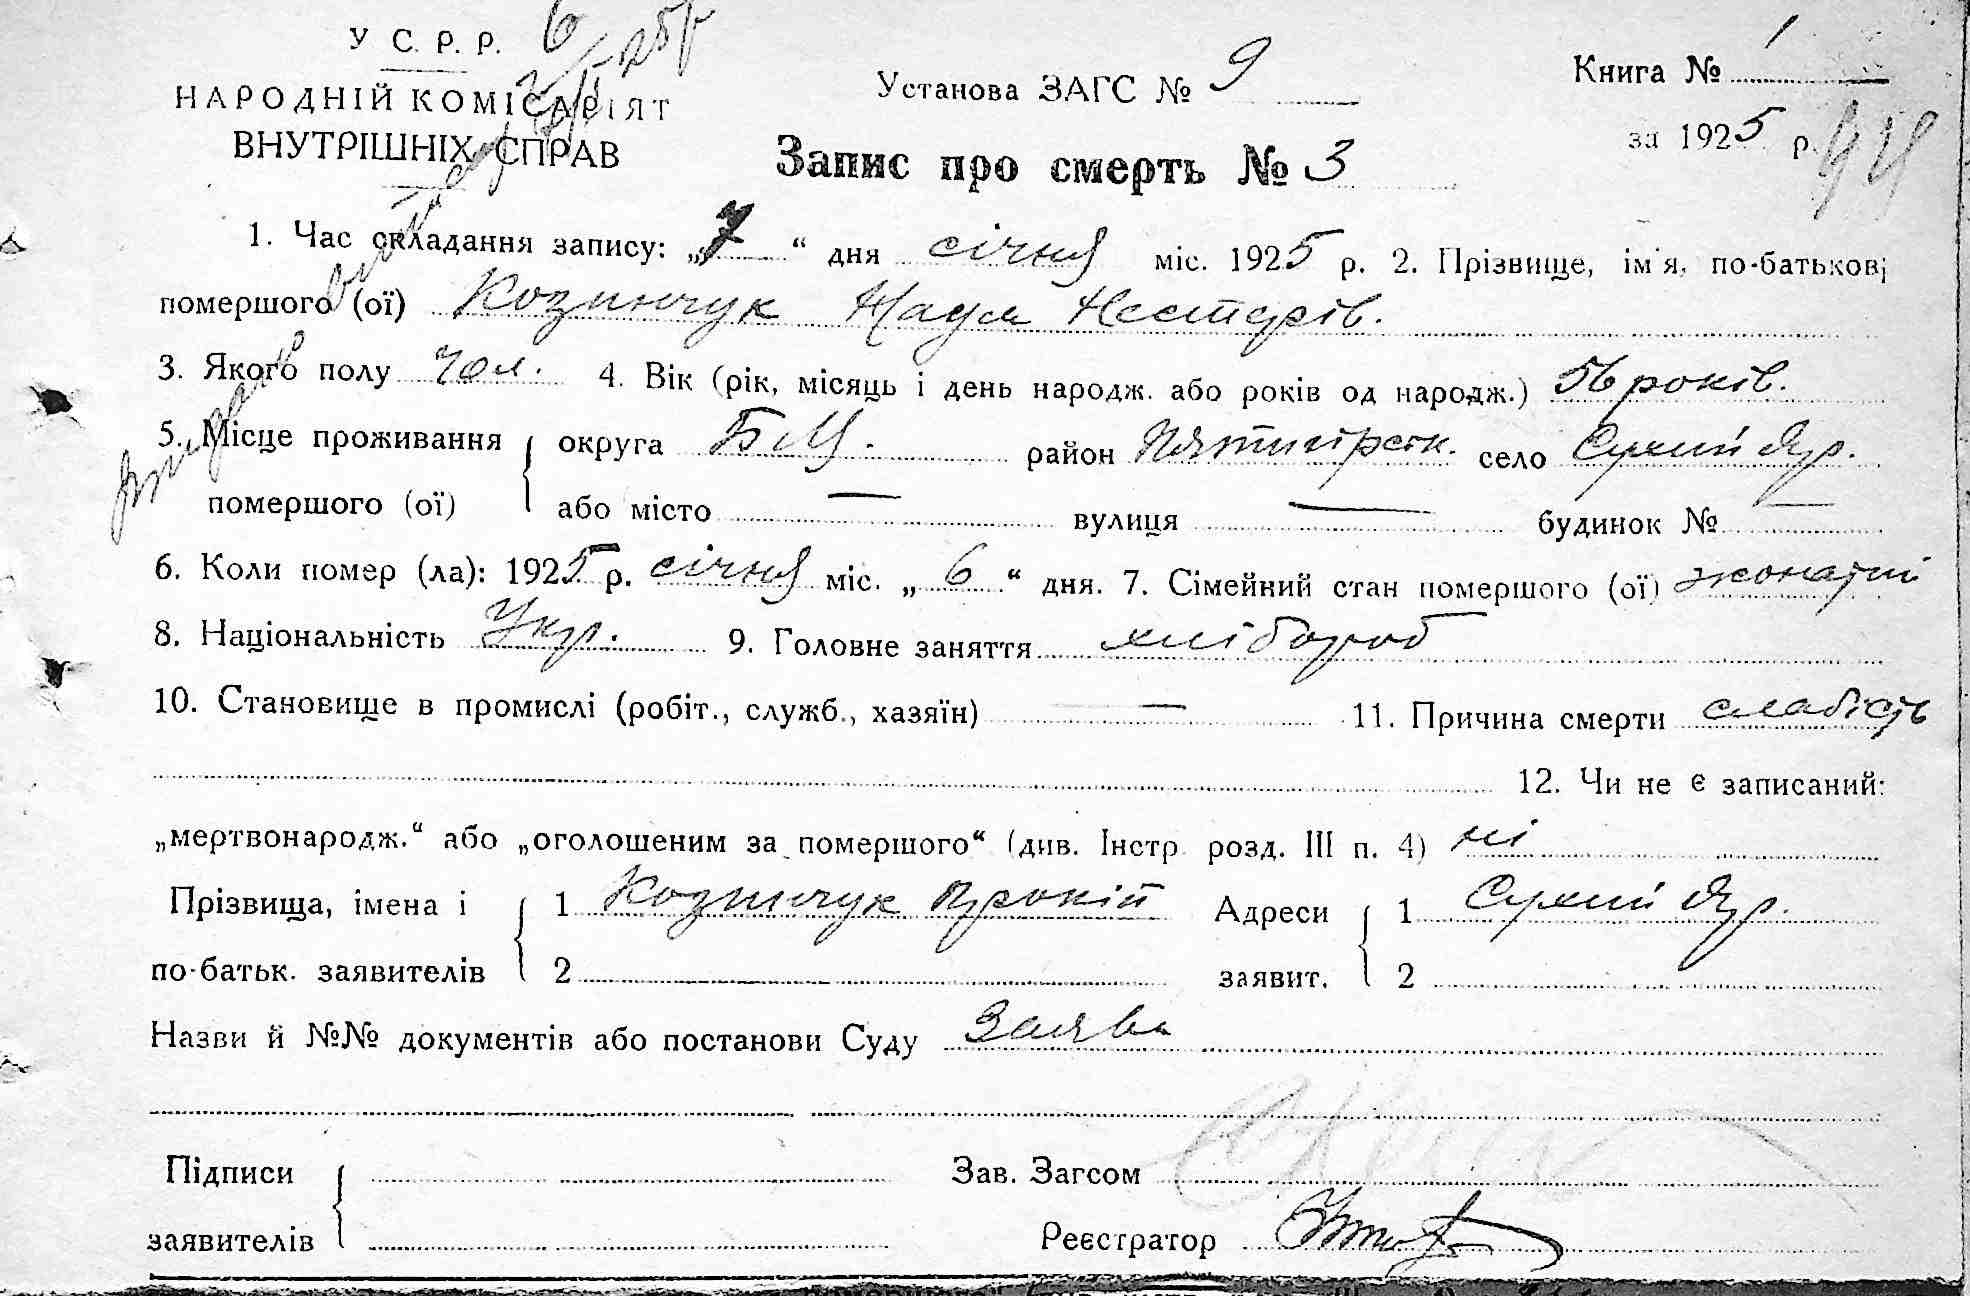 У С. Р. Р.
НАРОДНІЙ КОМІСАРІЯТ
ВНУТРІШНІХ СПРАВ
Установа ЗАГС № 9
Книга № 1
за 1925 р.
Запис про смерть № 3
1. Час складання запису: „7“ дня січня міс. 1925 р. 2. Прізвище, ім'я, по-батькові
помершого (ої) Козинчук Наум Нестерів.
3. Якого полу чол. 4. Вік (рік, місяць і день народж. або років од народж.) 56 років.
5. Місце проживання округа БЦ. район Пятигірськ. село Сухий Яр.
помершого (ої) або місто — вулиця — будинок № —
6. Коли помер (ла): 1925 р. січня міс. „6“ дня. 7. Сімейний стан помершого (ої) жонатий
8. Національність Укр. 9. Головне заняття хлібороб
10. Становище в промислі (робіт., служб., хазяїн) — 11. Причина смерти слабість
12. Чи не є записаний:
„мертвонародж.“ або „оголошеним за помершого“ (див. Інстр. розд. III п. 4) ні
Прізвища, імена і 1 Козинчук Прокій Адреси 1 Сухий Яр.
по-батьк. заявителів 2 заявит. 2
Назви й №№ документів або постанови Суду Заява
Підписи Зав. Загсом
заявителів Реєстратор